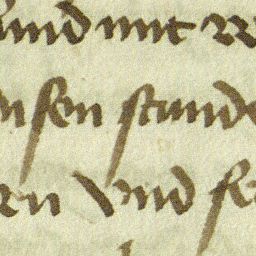 und mit w
nsen stund
en vnd se